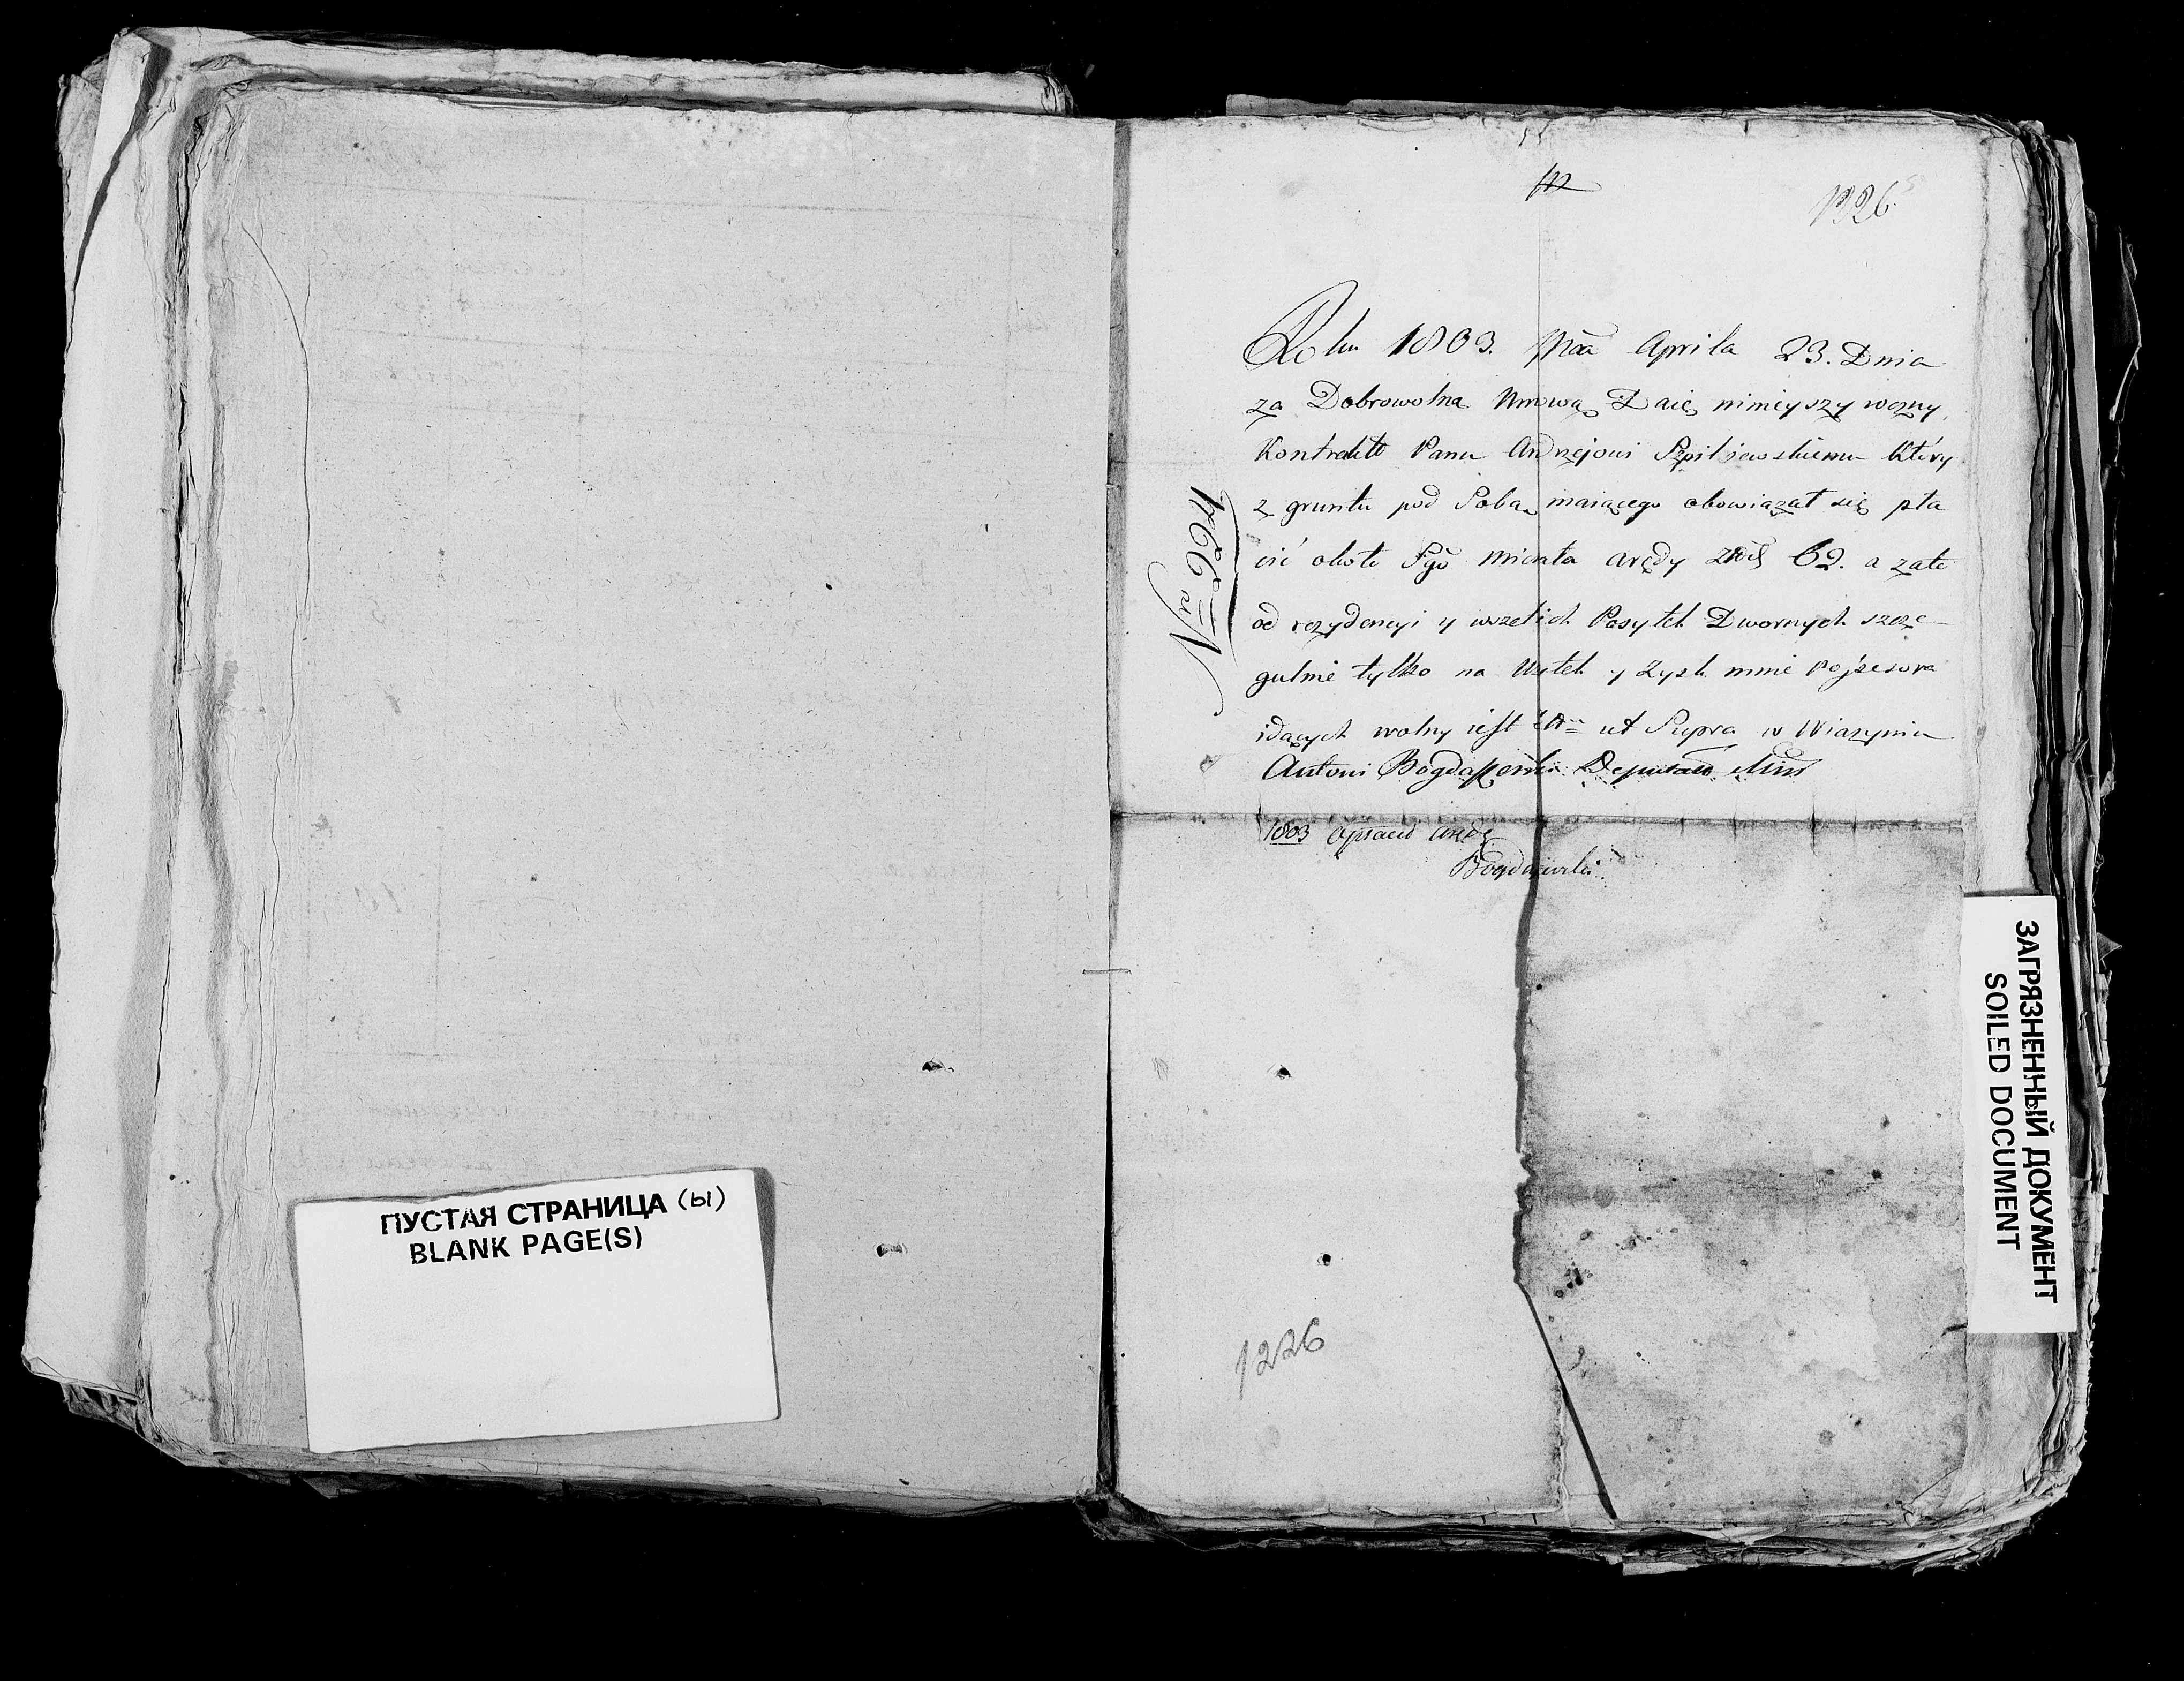 ПУСТАЯ СТРАНИЦА (ы)
BLANK PAGE(S)
1226
Roku 1803. Mca Aprila 23. Dnia
za Dobrowolną Umową Daię ninieyszy wozny
Kontraktt Panu Andrzejowi Szpilewskiemu który
z gruntu pod Sobą maiącego obowiązał się pła
cić około Sgo Michała aredy 62. a zate
od rezydencyi y wszelich Posyłek Dwornych szcze
gulnie tylko na Użytek y Zysk mnie Pojzesora
idących wolny iest ut Supra w Wiazyniu
Antoni Bogdaszewski Deputatt Mins
1803 opłacił aredę
Bogdaszewski
Nro 224
1226
ЗАГРЯЗНЕННЫЙ ДОКУМЕНТ
SOILED DOCUMENT